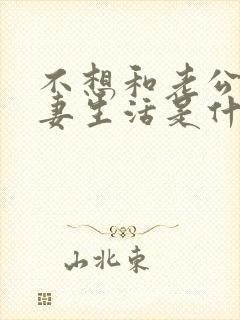 不想和老公
妻生活是什
山北東